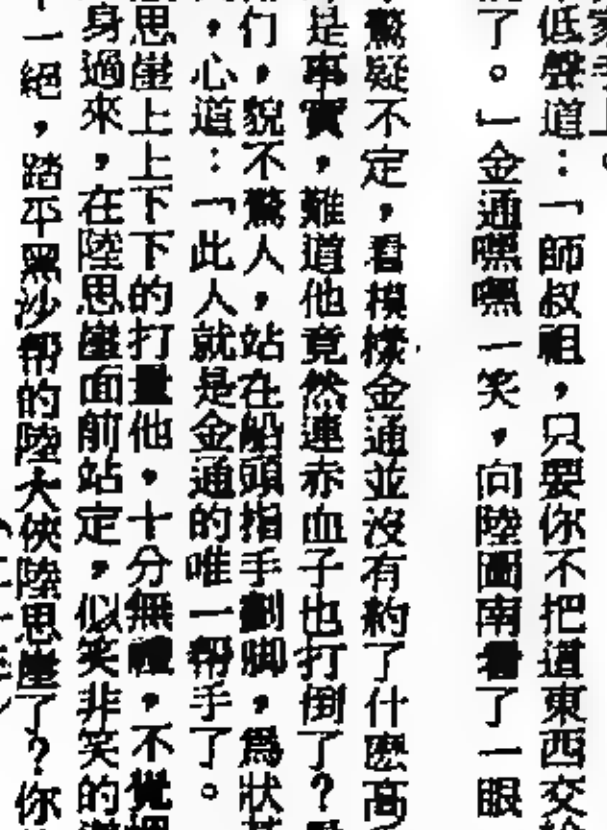 家手上。
低聲道：「師叔祖，只要你不把這東西交給
了。」金通嘿嘿一笑，向陸圖南看了一眼
驚疑不定，看模樣金通並沒有約了什麼高
是事實，難道他竟然連赤血子也打倒了？
们，貌不驚人，站在船頭指手劃脚，爲狀
，心道：「此人就是金通的唯一帮手了。
思崖上上下下的打量他，十分無禮，不覺
身過來，在陸思崖面前站定，似笑非笑的
一絕，踏平黑沙帮的陸大俠陸思崖了？你